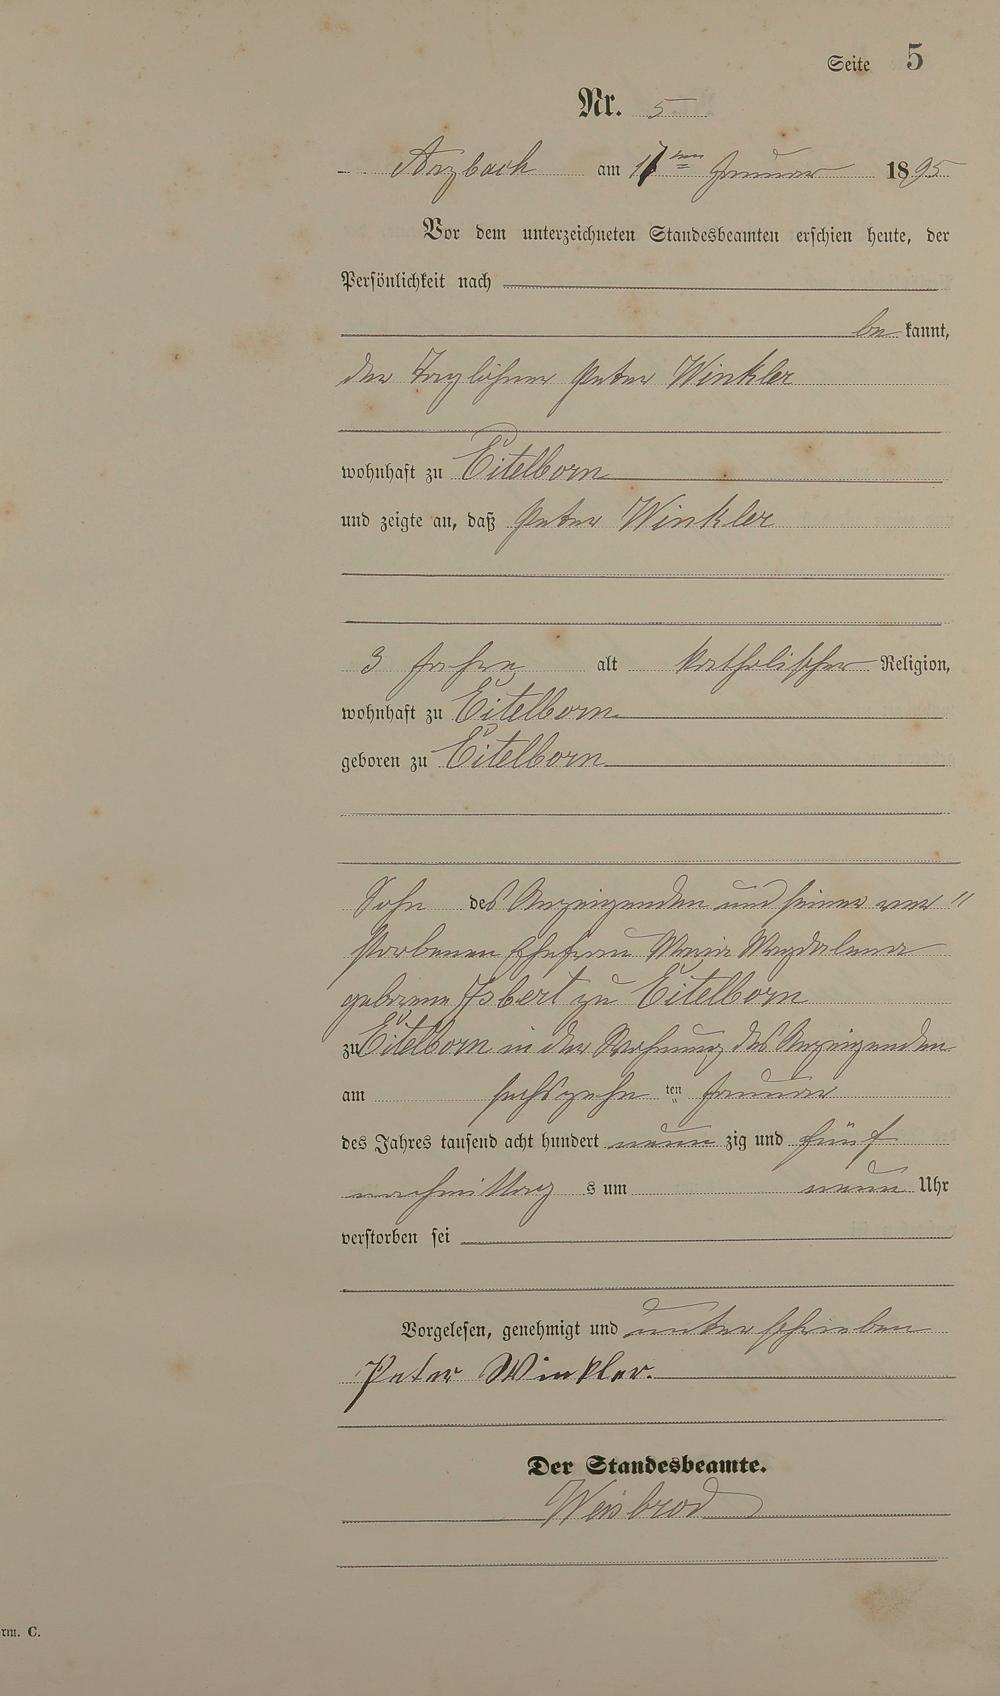 Seite 5
Nr. 5
Arzbach am 17ten Januar 1895
Vor dem unterzeichneten Standesbeamten erschien heute, der
Persönlichkeit nach
bekannt,
der Taglöhner Peter Winkler
wohnhaft zu Eitelborn
und zeigte an, daß Peter Winkler
3 Jahre alt katholischer Religion,
wohnhaft zu Eitelborn
geboren zu Eitelborn
Sohn des Anzeigenden und seiner ver"
storbenen Ehefrau Maria Magdalena
geborene Isbert zu Eitelborn
zu Eitelborn in der Wohnung des Anzeigenden
am sechszehnten Januar
des Jahres tausend acht hundert neunzig und fünf
nachmittags um neun Uhr
verstorben sei
Vorgelesen, genehmigt und unterschrieben
Peter Winkler.
Der Standesbeamte.
Weisbrod
rm. C.